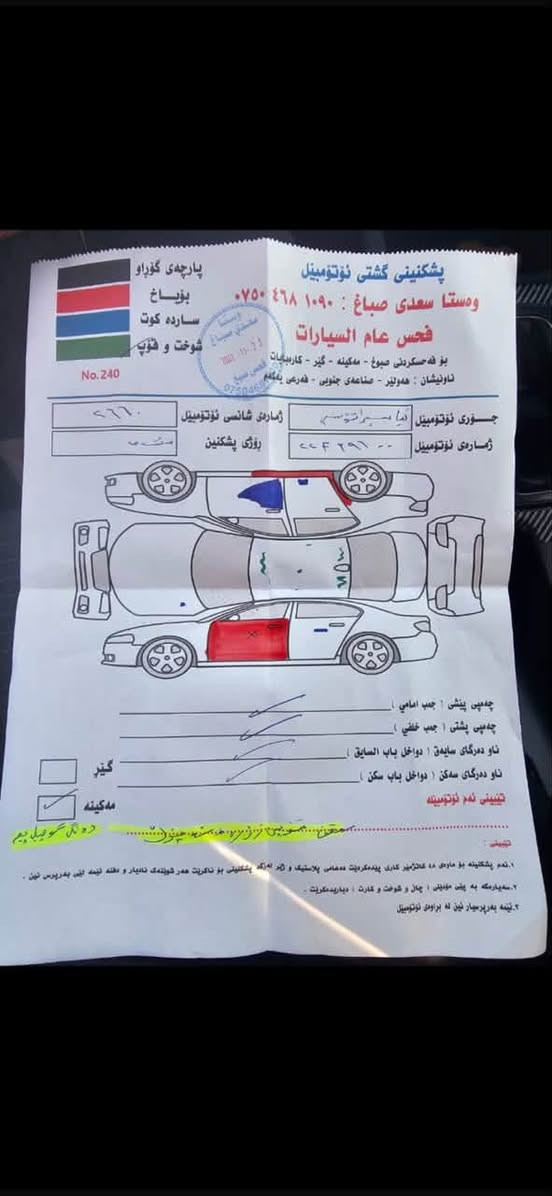 پشکنینی گشتی ئۆتۆمبێل
وەستا سعدی صباغ : ٠٧٥٠ ٤٦٨ ١٠٩٠
فحص عام السيارات
بۆ فەحسکردنی صبوغ - مەکینە - گێڕ - کارەبایات
ناونیشان : هەولێر - صناعەی جنوبی - فەرعی یەکەم
پارچەی گۆڕاو
بۆیاخ
ساردە کوت
شوخت و قۆپ
No.240
جۆری ئۆتۆمبێل
ژمارەی شانسی ئۆتۆمبێل ٢٦٦٠
ژمارەی ئۆتۆمبێل
ڕۆژی پشکنین
چەمپی پێشی ( جمب امامي )
چەمپی پشتی ( جمب خلفي )
ناو دەرگای سایەق ( دواخل باب السایق )
ناو دەرگای سەکن ( دواخل باب سكن )
گێڕ
مەکینە
تێبینی ئەم ئۆتۆمبێلە
تێبینی :
١.ئەم پشکنینە بۆ ماوەی دە کاتژمێر کاری پێدەکرێت دەعامی پلاستیک و ژێر لەزگە پشکنینی بۆ ناکرێت هەر شوێنەک نادیار و دقلە ئێمە لێی بەرپرس نین .
٢.سەیارەکە بە پێی مۆدێلی ( چان و شوخت و کارت ) دیاریدەکرێت .
٣.ئێمە بەرپرسیار نین لە بڕاوەی ئۆتۆمبێل